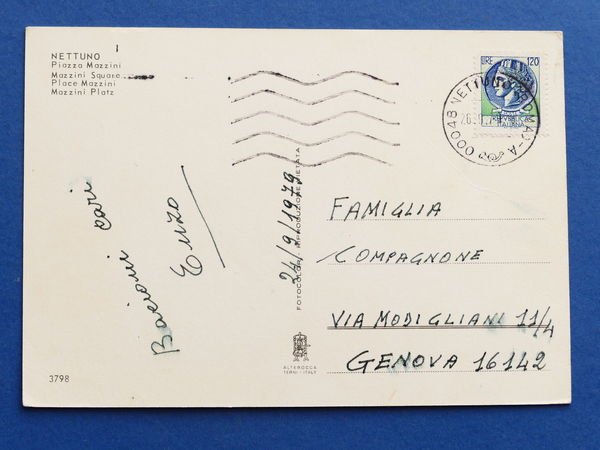 NETTUNO
Piazza Mazzini
Mazzini Square
Place Mazzini
Mazzini Platz
LIRE 120
REPUBBLICA
ITALIANA
00048 NETTUNO
Bacioni cari
Enzo
24/9/1979
FOTOCOLOR - RIPRODUZIONE VIETATA
FAMIGLIA
COMPAGNONE
VIA MODIGLIANI 11/4
GENOVA 16142
ALTEROCCA
TERNI - ITALY
3798